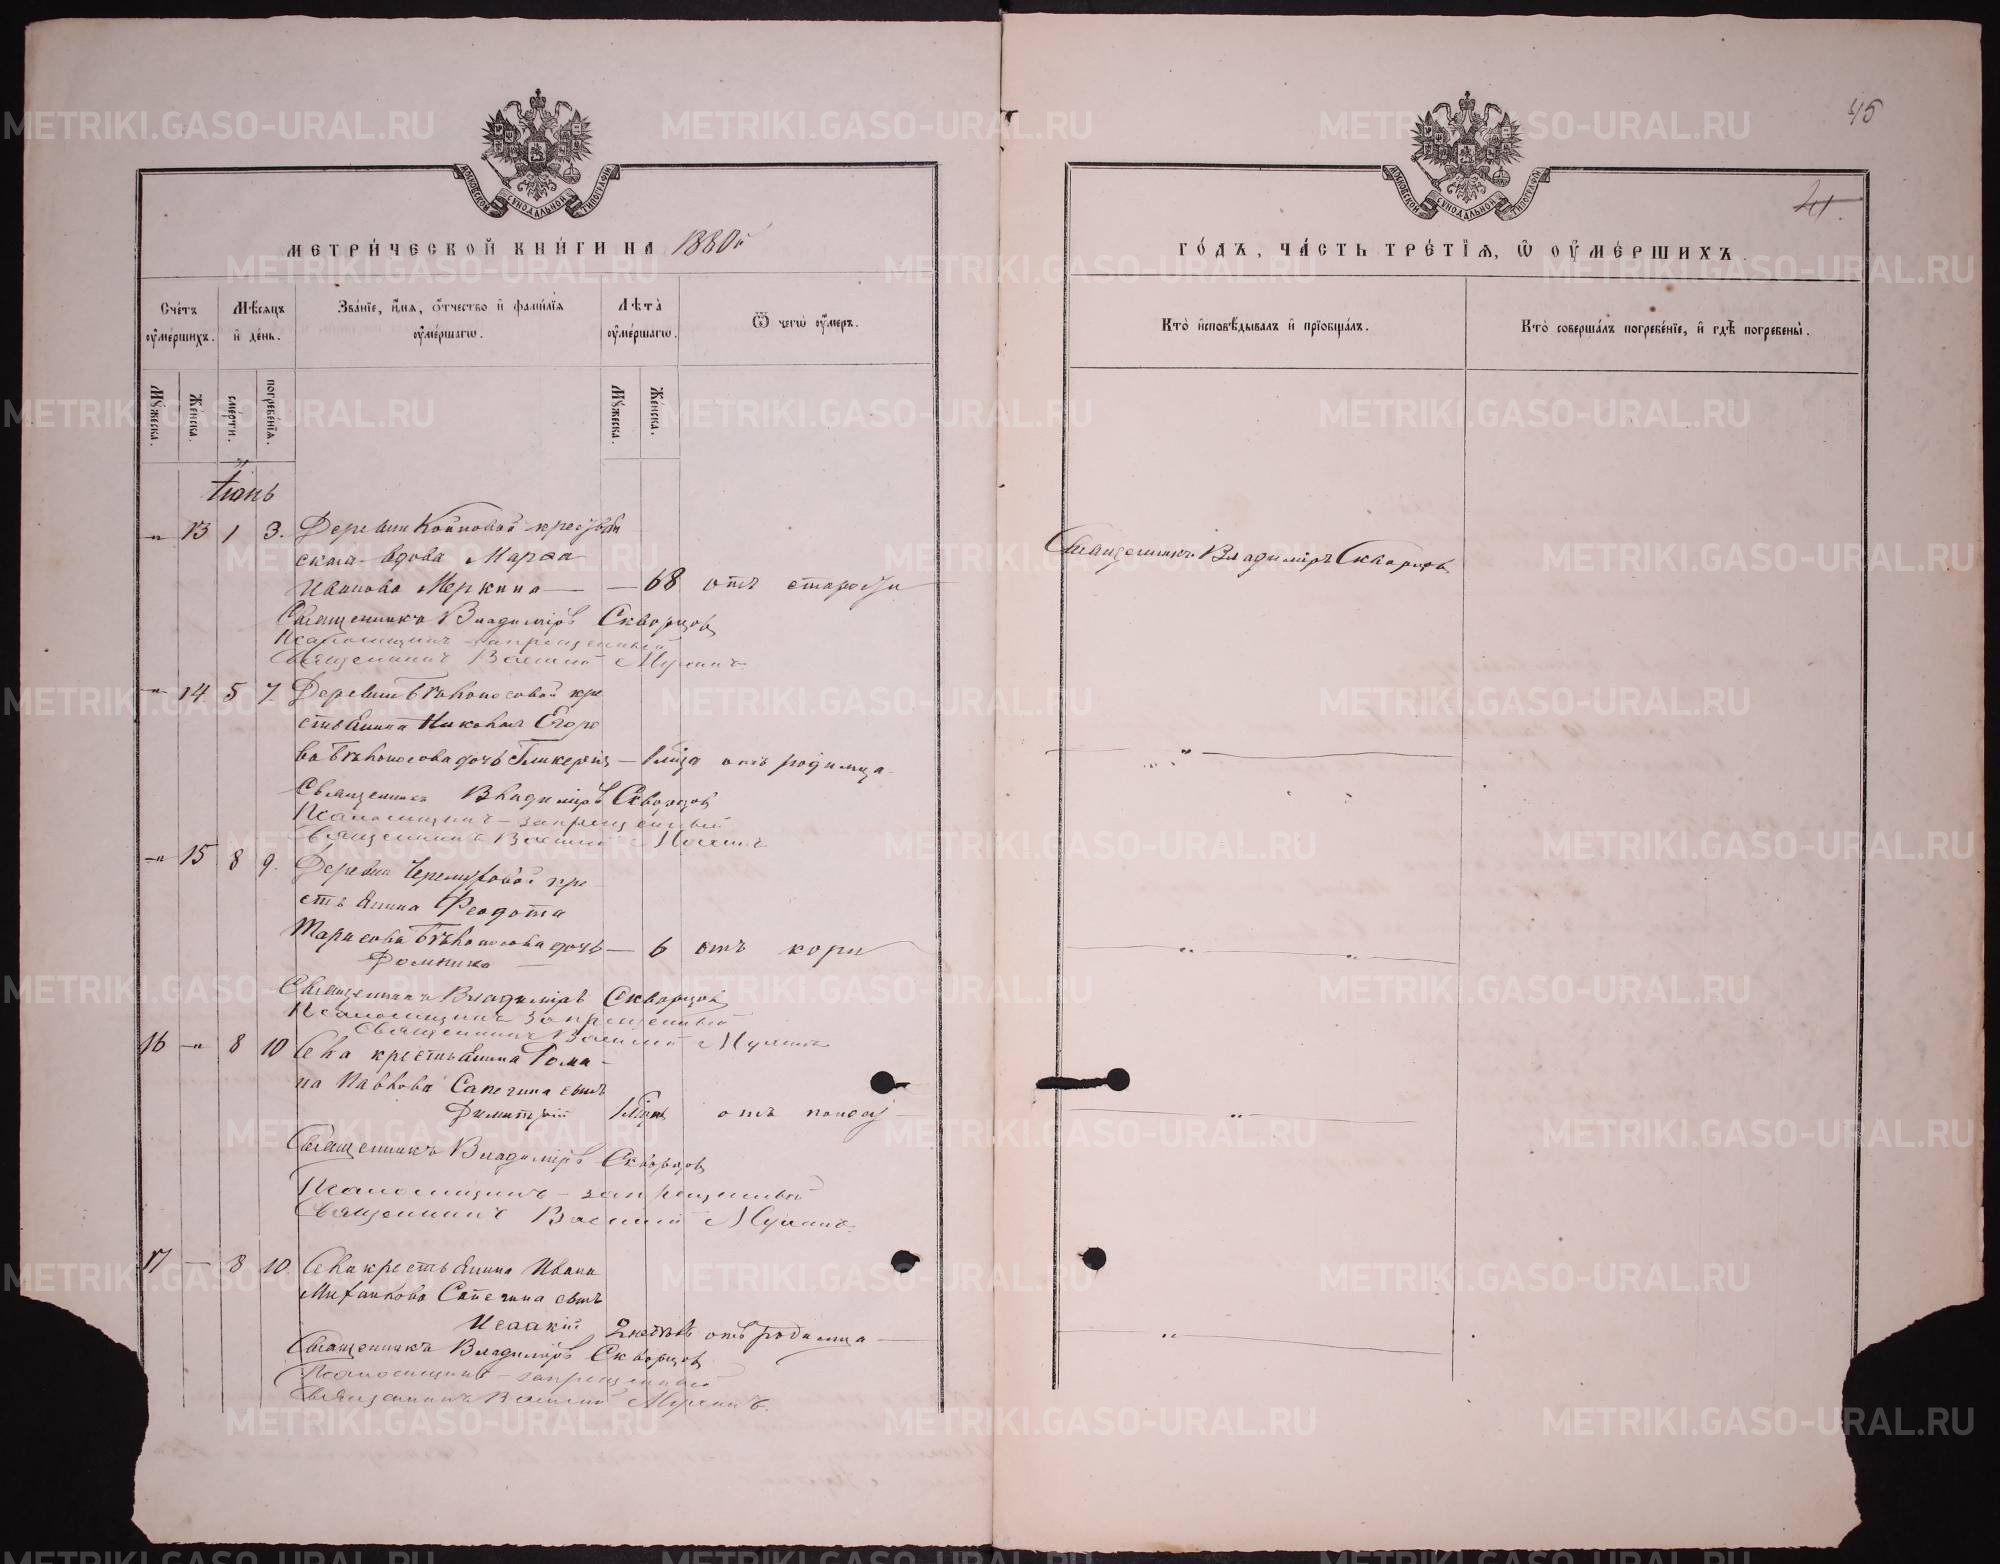 45
41.
МОСКОВСКОЙ СУНОДАЛЬНОЙ ТИПОГРАФІИ
МОСКОВСКОЙ СУНОДАЛЬНОЙ ТИПОГРАФІИ
МЕТРИ́ЧЕСКОЙ КНИ́ГИ НА 1880й
Сче́тъ ᲂу҆ме́ршихъ.
Мѣ́сяцъ и҆ де́нь.
Зва́нїе, и҆́мя, ѻ҆́тчество и҆ фами́лїя ᲂу҆ме́ршагѡ.
Лѣ́та ᲂу҆ме́ршагѡ.
Ѿ чегѡ̀ ᲂу҆́меръ.
Мꙋ́жеска.
Же́нска.
сме́рти.
погребе́нїя.
Мꙋ́жеска.
Же́нска.
Іюнь
-„ 13 1 3. Деревни Койновой крестьян
ская вдова Марѳа
Иванова Меркина — — 68 отъ старости
Священникъ Владиміръ Скворцов
Псаломщикъ запрещенный
Священникъ Василій Мулинъ
-„ 14 5 7 Деревни Бѣлоносовой кре
стьянина Николая Егоро
ва Бѣлоносова дочь Гликерія — 1 мѣсяца отъ родимца
Священникъ Владиміръ Скворцов
Псаломщикъ – запрещенный
Священникъ Василій Мулинъ
-„ 15 8 9. Деревни кре
стьянина Феодота
Тарасова Бѣлоносова дочь — 6 отъ кори
Домника —
Священникъ Владиміръ Скворцов
Псаломщикъ запрещенный
Священникъ Василій Мулинъ
16 -„ 8 10 Села крестьянина Рома-
на Павлова Сапегина сынъ
Димитрій 1 отъ поносу
Священникъ Владиміръ Скворцов
Псаломщикъ – запрещенный
Священникъ Василій Мулинъ
17 — 8 10 Села крестьянина Ивана
Михайлова Сапегина сынъ
Исаакій 2 отъ родимца —
Священникъ Владиміръ Скворцов
Псаломщикъ – запрещенный
Священникъ Василій Мулинъ.
ГО́ДЪ, ЧА́СТЬ ТРЕ́ТЇЯ, Ѡ҆ ᲂУ҆МЕ́РШИХЪ.
Кто̀ и҆сповѣ́дывалъ и҆ прїобща́лъ.
Кто̀ соверша́лъ погребе́нїе, и҆ гдѣ̀ погребены̀.
Священникъ Владиміръ Скворцовъ
— „ —
— „ — „ —
— „ —
— „ —
METRIKI.GASO-URAL.RU